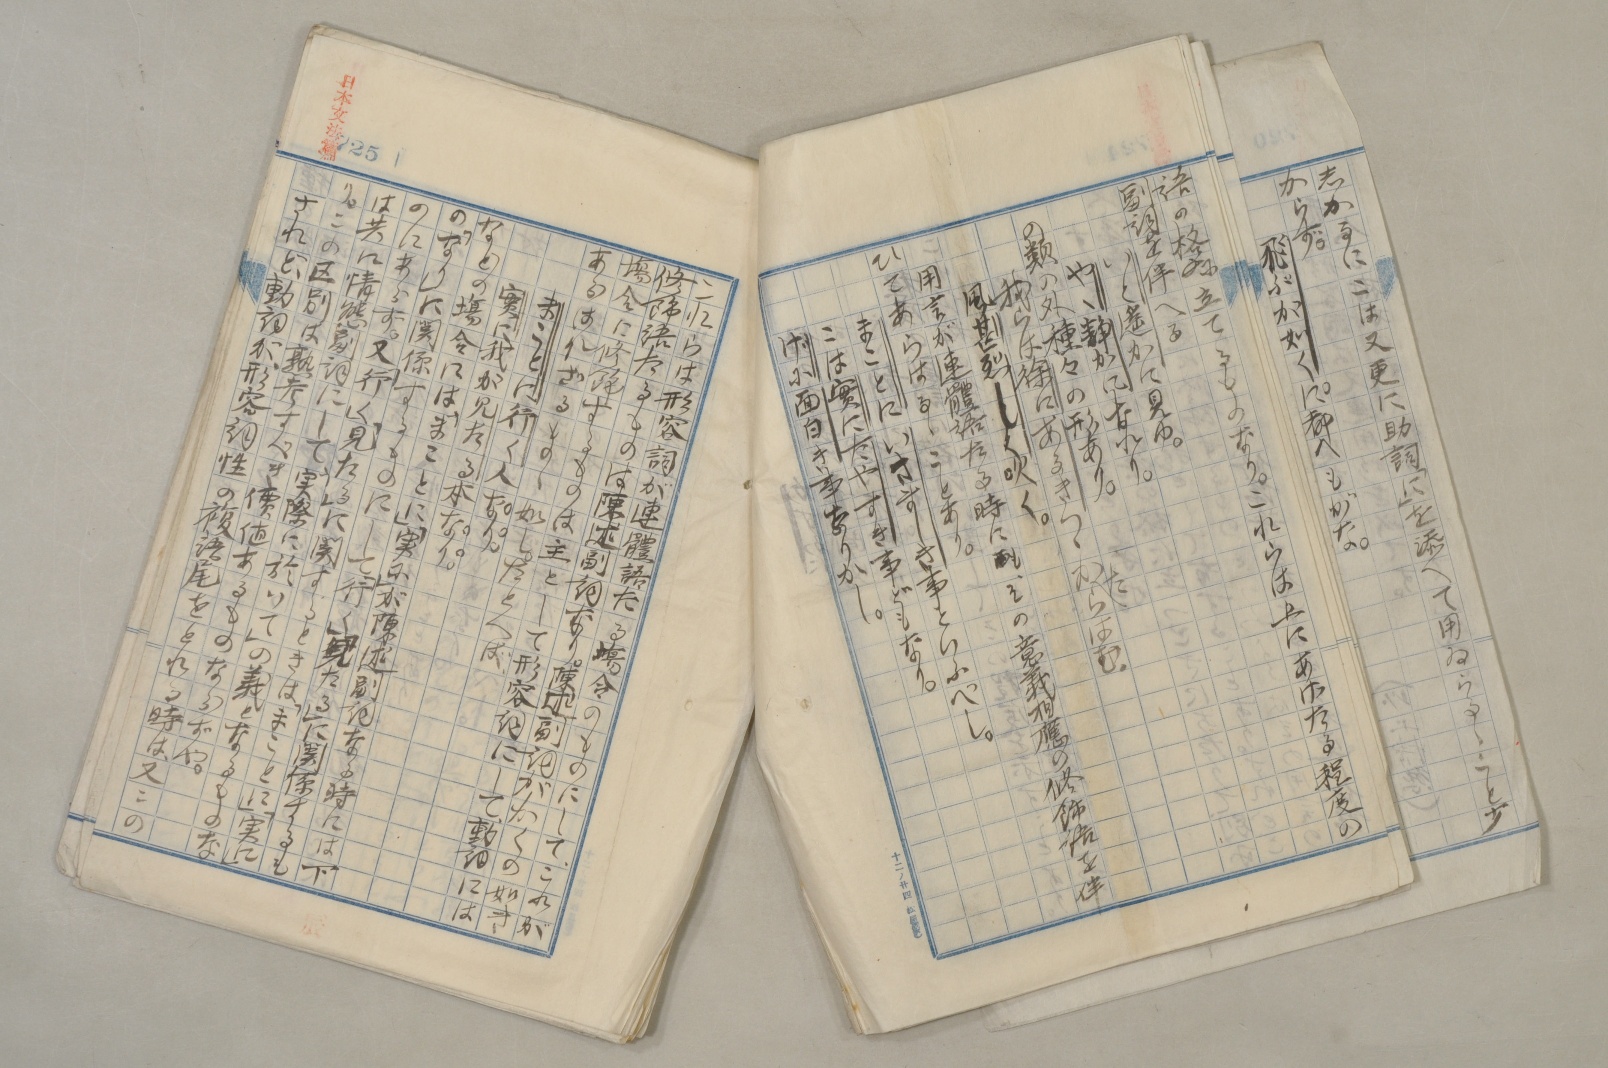 しかるにこは又更に助詞「に」を添へて用ゐらるゝこと少
からず。
飛ぶが如くに都へもがな。
語の格に立てるものなり。これらは上にあげたる程度の
副詞を伴へる
いと崔かに見ゆ。
やゝ静かになれり。
の類の外、種々の形あり。
我らは徐にあるきつゝ
風甚烈しく吹く。
用言が連體語たる時にもその意義相應の修飾語を伴
ひてあらはるゝことあり。
まことにいさましき事といふべし。
こは實にたやすき事どもなり。
げに面白き事なりかし。
十二ノ廿四
これらは形容詞が連體語たる場合のものにして、これが
修飾語たるものは陳述副詞なり。陳述副詞がかくの如き
場合に修飾するものは主として形容詞にして動詞には
あらはれざるものゝ如し。たとへば
まことに行く人なり。
実に我が見たる本なり。
などの場合には「まことに」「実に」が陳述副詞なる時には下
の「なり」に関係するものにして「行く」「見たる」に関係するも
のにあらず。又「行く」「見たる」に関するときは「まことに」「実に」
は共に情態副詞にして実際に於いての義となるものな
り。この区別は熟考すべき價値あるものならずや。
されど、動詞が形容詞性の複語尾をとれる時は又この
日本文法論
725